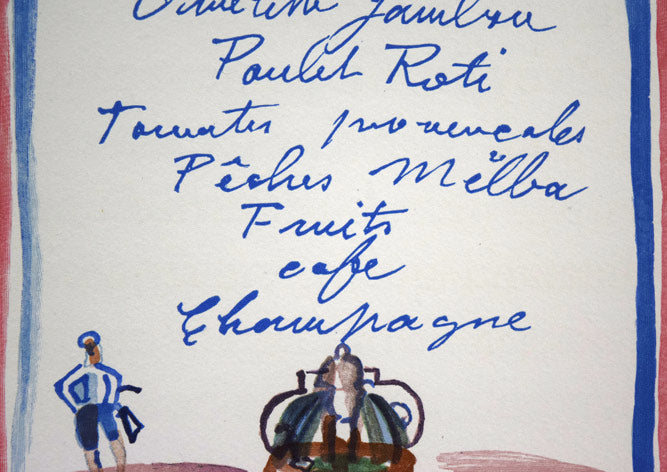 Omelette Jambon
Poulet Roti
Tomates provençales
Pêches Mëlba
Fruits
café
Champagne